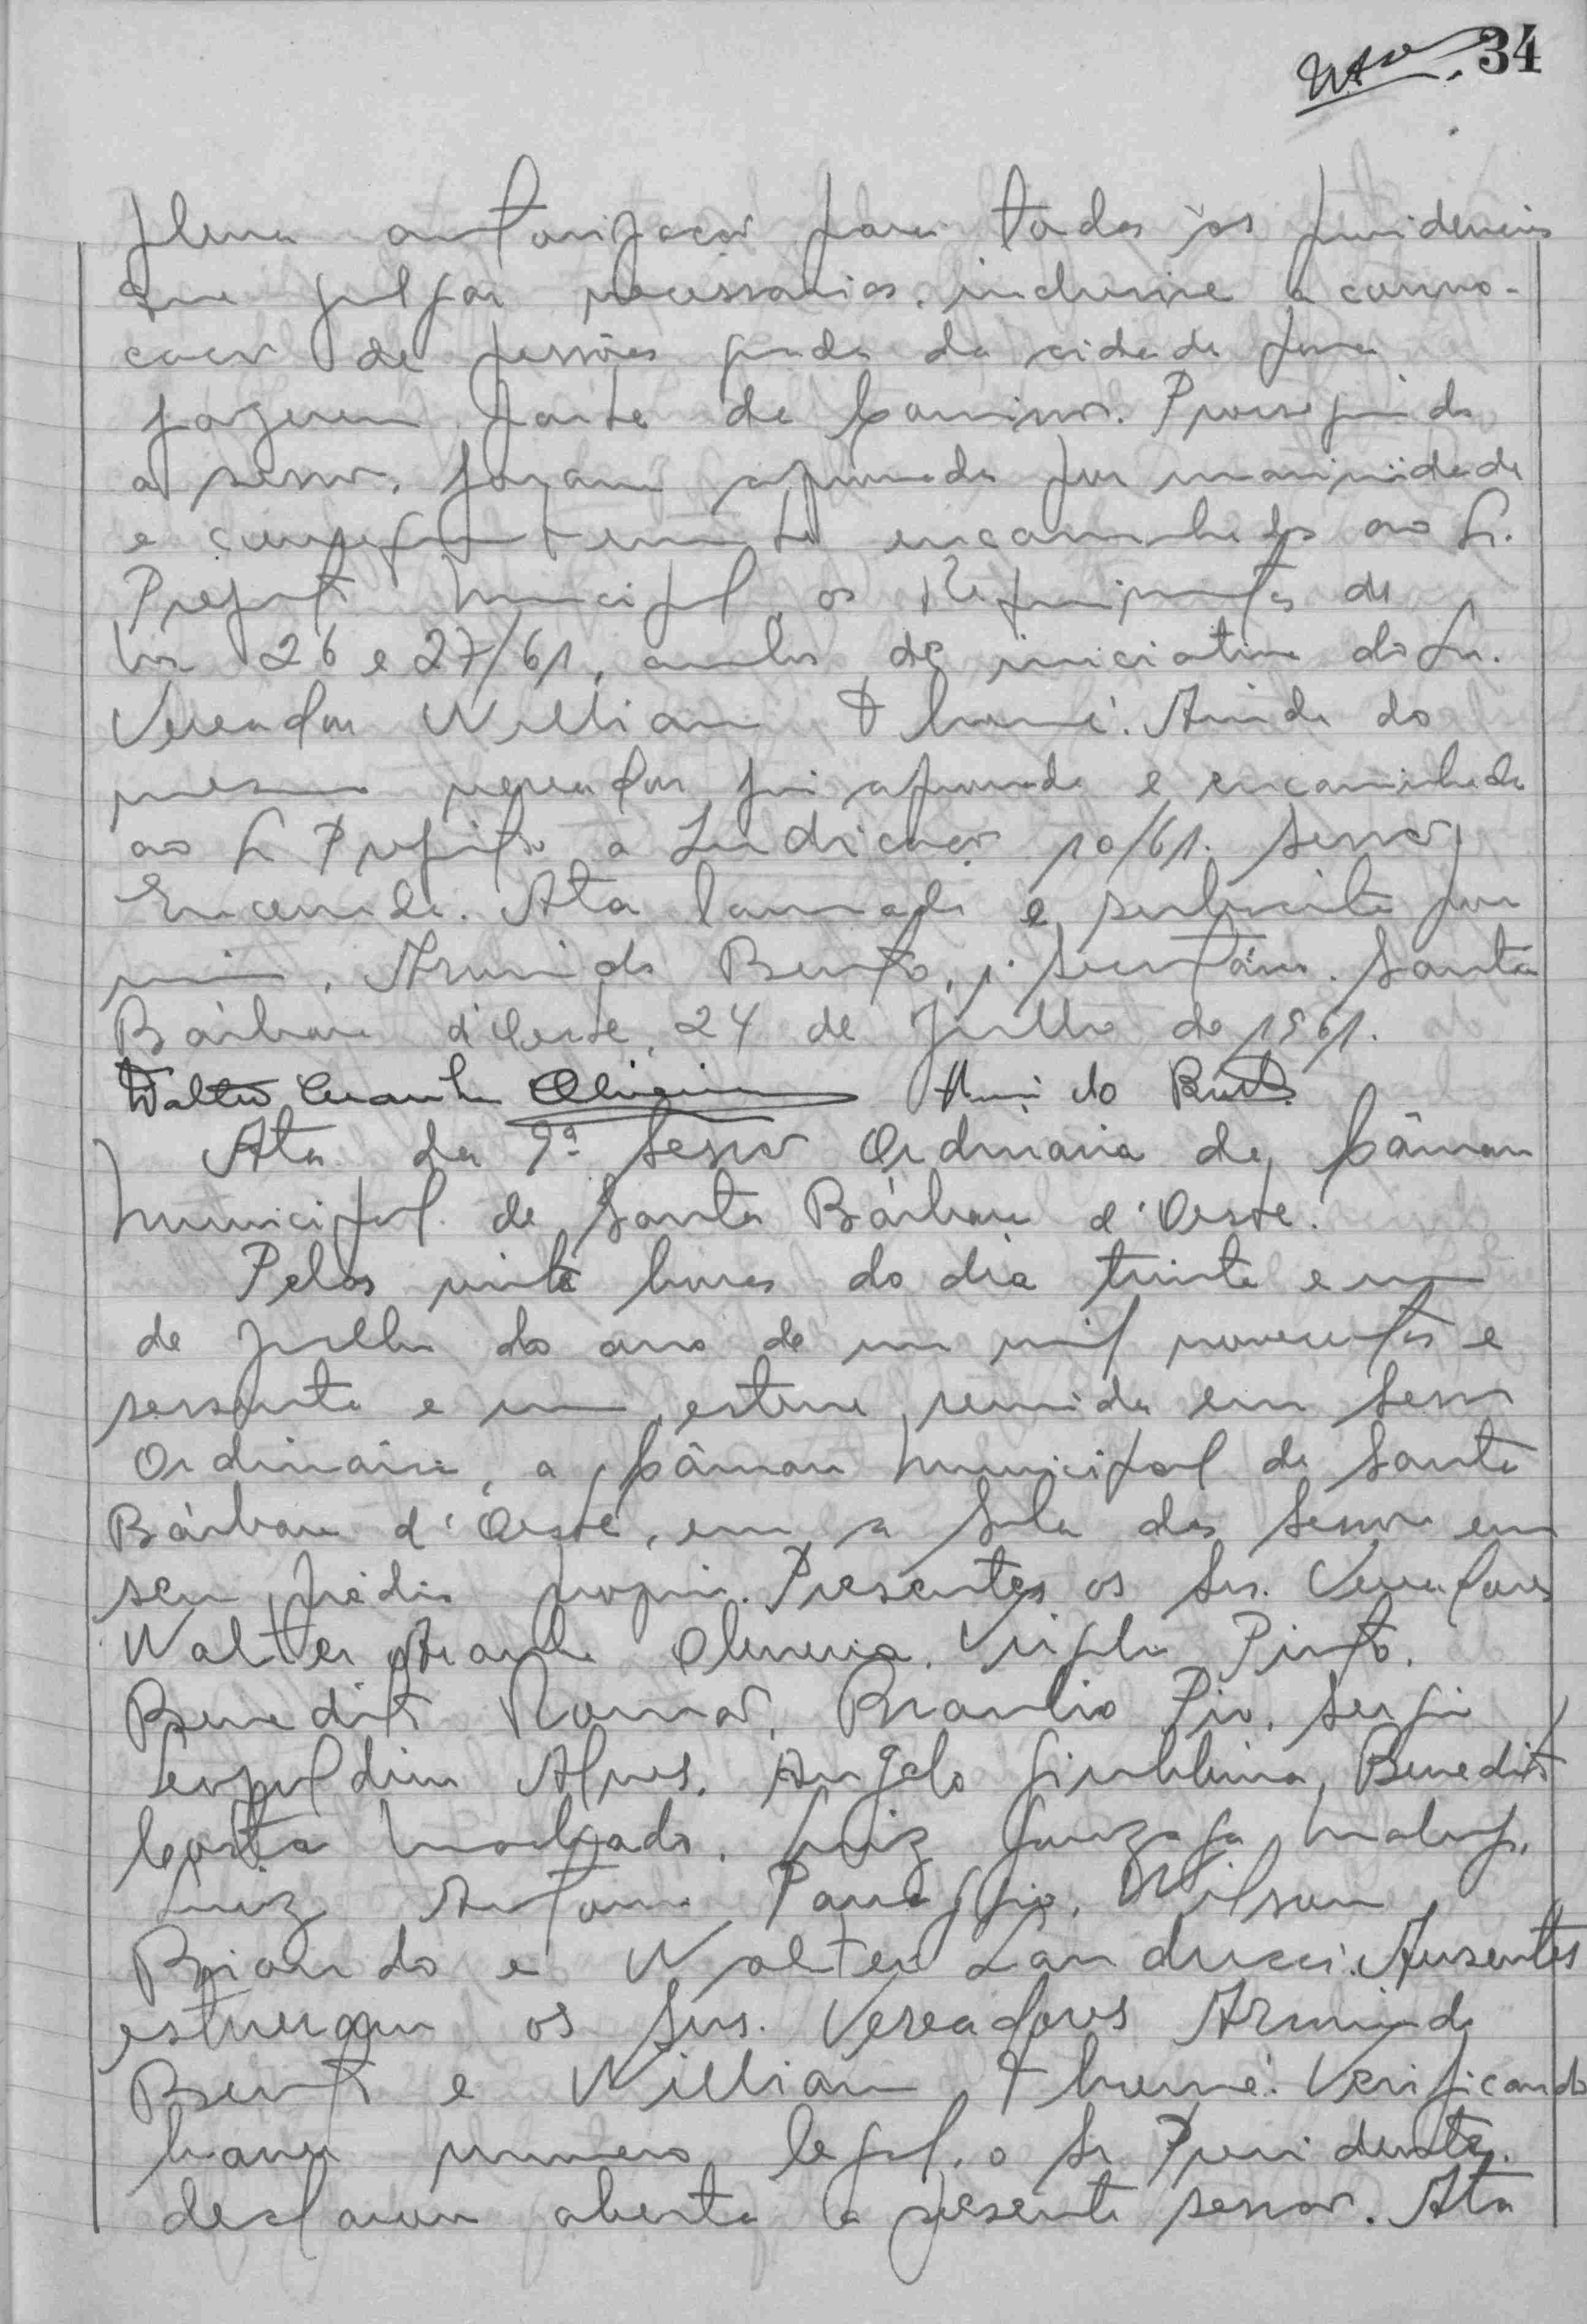 34
plena autorização para todas as providencias
que julgar necessarias, inclusive a convo-
cação de pessôas gradas da cidade para
fazerem parte da Comissão. Prosseguindo
a sessão, foram aprovados por unanimidade
e consequentemente encaminhados ao Sr.
Prefeito Municipal, os Requerimentos de
nos 26 e 27/61, ambos de iniciativa do Sr.
Vereador Willian Thomé. Ainda do
mesmo vereador foi aprovada e encaminhada
ao Sr Prefeito a Indicação 10/61. Sessão
Encerrada. Ata lavrada e subscrita por
mim, Armindo Bento, 1º Secretário. Santa
Bárbara d'Oeste, 24 de Julho de 1961.
Walter Oliveira Armindo Bento
Ata da 9ª Sessão Ordinaria da Câmara
Municipal de Santa Bárbara d'Oeste.
Pelas vinte horas do dia trinta e um
de Julho do ano de um mil novecentos e
sessenta e um, esteve reunida em sessão
Ordinária, a Câmara Municipal de Santa
Bárbara d'Oeste, em a Sala das Sessões em
seu prédio proprio. Presentes os Srs. Vereadores
Walter Oliveira, Virgilio Pinto,
Benedito Romão, Braulio Pio, Sergio
Leopoldino Alves, Angelo Giubbina, Benedito
Costa Machado, Luiz Gonzaga
Luiz Antonio Panaggio, Wilson
Briando e Walter Landucci. Ausentes
estiveram os Srs. Vereadores Armindo
Bento e Willian Thomé. Verificando
haver numero legal, o Sr Presidente
declarou aberta a presente sessão. Ata